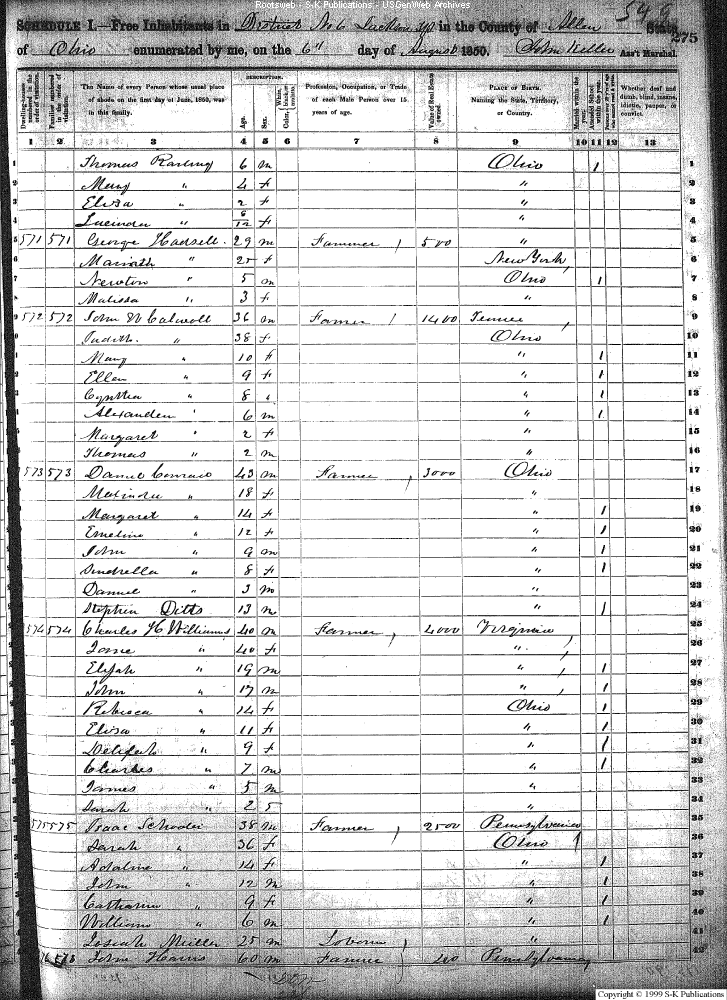 Rootsweb - S-K Publications - USGenWeb Archives
SCHEDULE I.—Free Inhabitants in District No 6 Jackson Tp in the County of Allen State 275
of Ohio enumerated by me, on the 6" day of August 1850. John Keller Ass't Marshal.
Dwelling-houses numbered in the order of visitation.
Families numbered in the order of visitation.
The Name of every Person whose usual place of abode on the first day of June, 1850, was in this family.
DESCRIPTION.
Age.
Sex.
Color, White, black, or mulatto.
Profession, Occupation, or Trade of each Male Person over 15 years of age.
Value of Real Estate owned.
PLACE OF BIRTH. Naming the State, Territory, or Country.
Married within the year.
Attended School within the year.
Whether deaf and dumb, blind, insane, idiotic, pauper, or convict.
1 2 3 4 5 6 7 8 9 10 11 12 13
1 Thomas 6 m Ohio 1 1
2 Mary " 4 f " 2
3 Eliza " 2 f " 3
4 Lucinda " 6/12 f " 4
5 571 571 George Hadsell 29 m Farmer 500 " 5
6 " 25 f New York 6
7 Newton " 5 m Ohio 1 7
8 Malissa " 3 f " 8
9 572 572 John W 36 m Farmer 1400 Tennee 9
10 Judith " 38 f Ohio 10
11 Mary " 10 f " 1 11
12 Ellen " 9 f " 1 12
13 Cynthia " 8 " 1 13
14 Alexander " 6 m " 1 14
15 Margaret " 2 f " 15
16 Thomas " 2 m " 16
17 573 573 Daniel 43 m Farmer 3000 Ohio 17
18 Malinda " 18 f " 18
19 Margaret " 14 f " 1 19
20 Emeline " 12 f " 1 20
21 John " 9 m " 1 21
22 " 8 f " 1 22
23 Daniel " 3 m " 23
24 Stephen Ditts 13 m " 1 24
25 574 574 Charles H Williams 40 m Farmer 4000 Virginia 25
26 Jane " 40 f " 26
27 Elijah " 19 m " 1 27
28 John " 17 m " 1 28
29 Rebecca " 14 f Ohio 1 29
30 Eliza " 11 f " 1 30
31 " 9 f " 1 31
32 Charles " 7 m " 1 32
33 James " 5 m " 33
34 Sarah " 2 " 34
35 575 575 Isaac Schooler 38 m Farmer 2500 Pennsylvania 35
36 Sarah " 36 f Ohio 36
37 Adaline " 14 f " 1 37
38 John " 12 m " 1 38
39 Catharine " 9 f " 1 39
40 William " 6 m " 1 40
41 Josiah Miller 25 m " 41
42 John Harris 60 m Farmer Pennsylvania 42
Copyright © 1999 S-K Publications